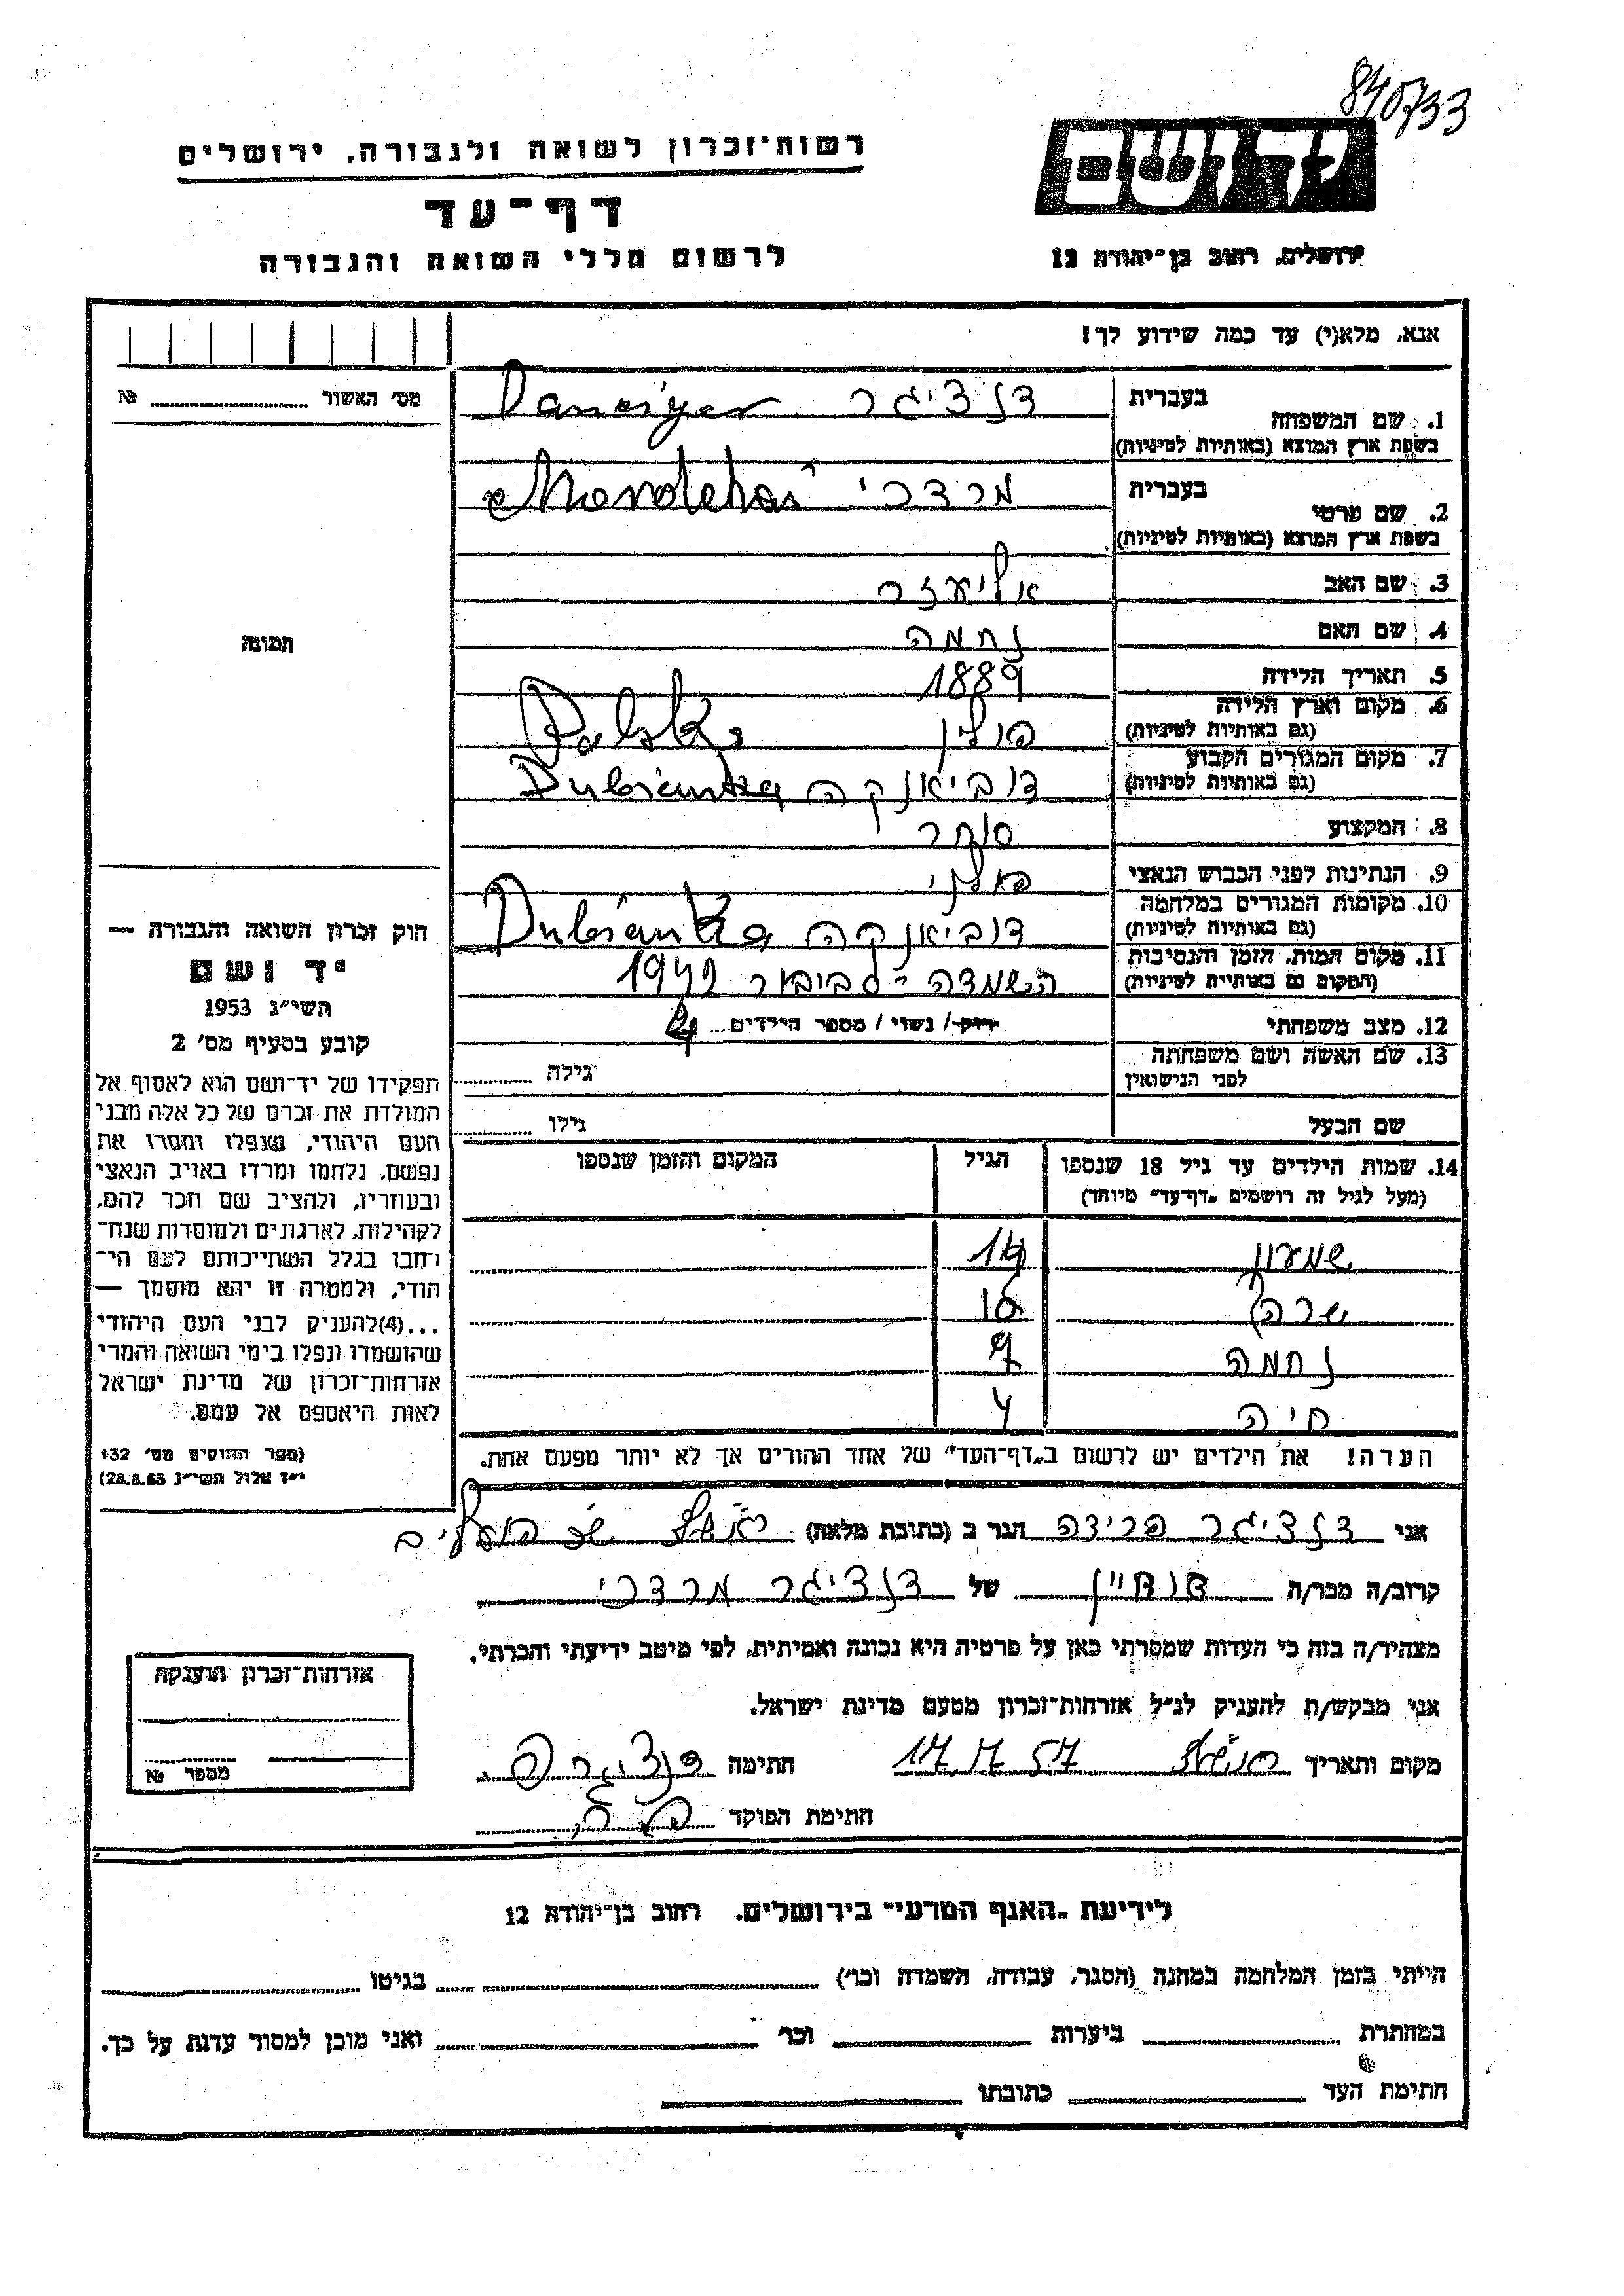 840733
יד ושם
ירושלים, רחוב בן־יהודה 12
רשות־זכרון לשואה ולגבורה, ירושלים
דף־עד
לרשום חללי השואה והגבורה
אנא, מלא(י) עד כמה שידוע לך!
מס׳ האשור № 
בעברית
1. שם המשפחה
בשפת ארץ המוצא (באותיות לטיניות)
דנציגר Danciger
בעברית
2. שם פרטי
בשפת ארץ המוצא (באותיות לטיניות)
מרדכי Mordchai
3. שם האב
אליעזר
4. שם האם
נחמה
5. תאריך הלידה
1889
6. מקום וארץ הלידה
(גם באותיות לטיניות)
פולין Polska
7. מקום המגורים הקבוע
(גם באותיות לטיניות)
דוביאנקה Dubianka
8. המקצוע
סוחר
9. הנתינות לפני הכבוש הנאצי
פולני
10. מקומות המגורים במלחמה
(גם באותיות לטיניות)
דוביאנקה Dubianka
11. מקום המות, הזמן והנסיבות
(המקום גם באותיות לטיניות)
השמדה - סביבור 1942
12. מצב משפחתי
רוק/ נשוי / מספר הילדים 4
13. שם האשה ושם משפחתה
לפני הנישואין
גילה
שם הבעל
גילו
14. שמות הילדים עד גיל 18 שנספו
(מעל לגיל זה רושמים „דף־עד״ מיוחד)
הגיל
המקום והזמן שנספו
שמעון 14
שרה 10
נחמה 7
חיה 4
הערה! את הילדים יש לרשום ב„דף־העד״ של אחד ההורים אך לא יותר מפעם אחת.
תמונה
חוק זכרון השואה והגבורה —
יד ושם
תשי״ג 1953
קובע בסעיף מס׳ 2
תפקידו של יד־ושם הוא לאסוף אל
המולדת את זכרם של כל אלה מבני
העם היהודי, שנפלו ומסרו את
נפשם, נלחמו ומרדו באויב הנאצי
ובעוזריו, ולהציב שם וזכר להם,
לקהילות, לארגונים ולמוסדות שנח־
רבו בגלל השתייכותם לעם הי־
הודי, ולמטרה זו יהא מוסמך —
...(4) להעניק לבני העם היהודי
שהושמדו ונפלו בימי השואה והמרי
אזרחות־זכרון של מדינת ישראל
לאות היאספם אל עמם.
(ספר החוקים מס׳ 132
י״ז אלול תשי״ג 28.8.53)
אני דנציגר פרידה הגר ב (כתובת מלאה)
קרוב/ה מכר/ה של דנציגר מרדכי
מצהיר/ה בזה כי העדות שמסרתי כאן על פרטיה היא נכונה ואמיתית, לפי מיטב ידיעתי והכרתי.
אני מבקש/ת להעניק לנ״ל אזרחות־זכרון מטעם מדינת ישראל.
מקום ותאריך 17.7.57 חתימה דנציגר פ.
חתימת הפוקד
אזרחות־זכרון הוענקה
מספר №
לידיעת „האגף המדעי״ בירושלים, רחוב בן־יהודה 12
הייתי בזמן המלחמה במחנה (הסגר, עבודה, השמדה וכו׳) בגיטו
במחתרת ביערות וכו׳ ואני מוכן למסור עדות על כך.
חתימת העד כתובתו